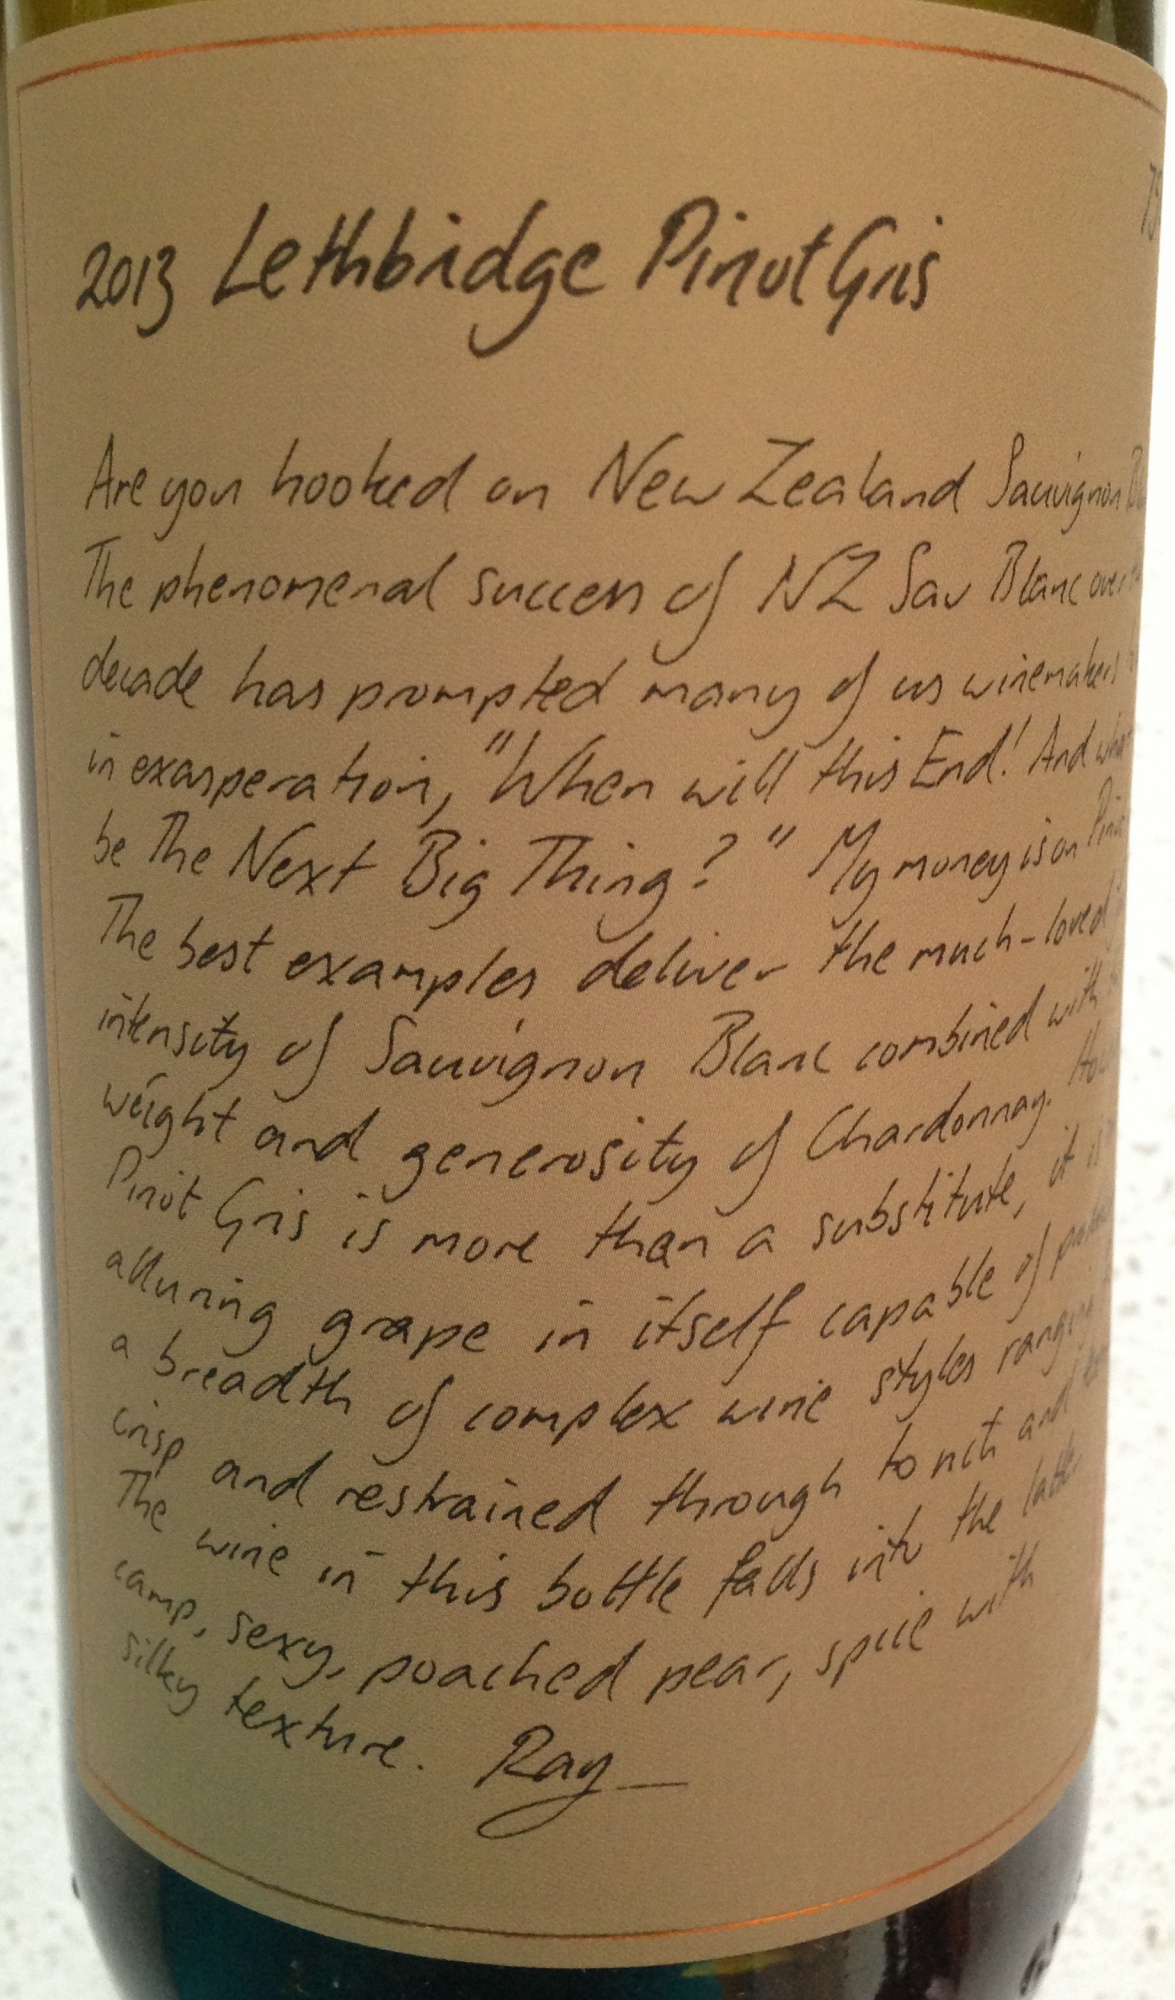 75
2013 Lethbridge Pinot Gris
Are you hooked on New Zealand Sauvignon
The phenomenal success of NZ Sav Blanc over
decade has prompted many of us winemakers
in exasperation, "When will this End! And
be The Next Big Thing?" My money is on Pinot
The best examples deliver the much-loved
intensity of Sauvignon Blanc combined with
weight and generosity of Chardonnay.
Pinot Gris is more than a substitute, it is
alluring grape in itself capable of
a breadth of complex wine styles ranging
crisp and restrained through to rich and
The wine in this bottle falls into the latter
camp, sexy, poached pear, spice with
silky texture. Ray